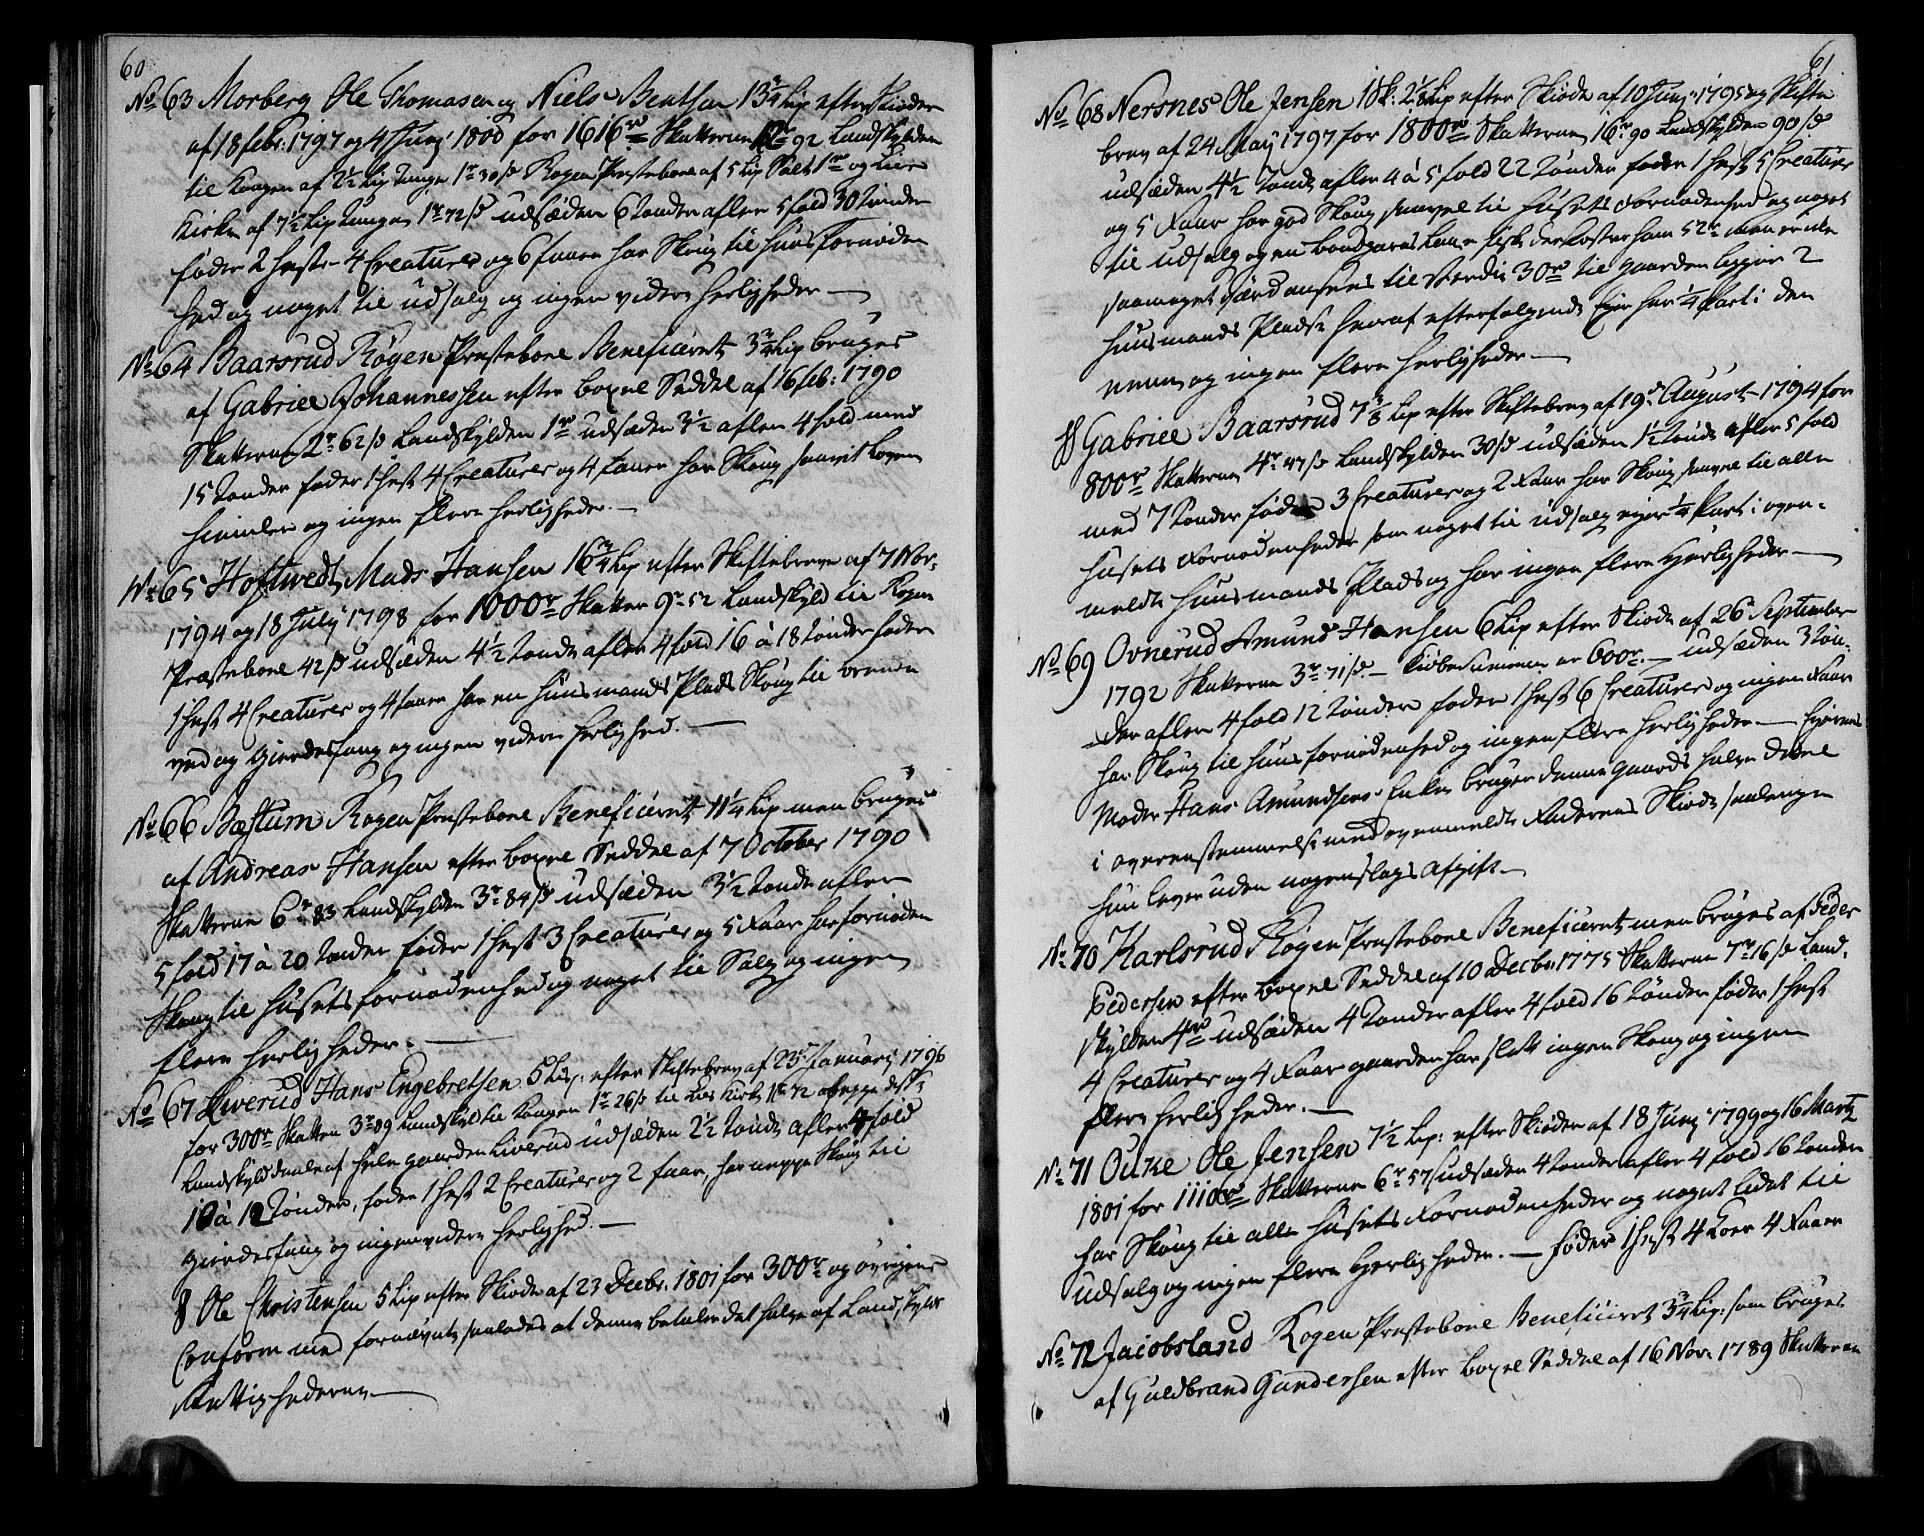 60
No 63 Morberg Ole Thomasen og Niels Bentsen 13¾ Lip efter Skiøder
af 18 febr: 1797 og 4 Junj 1800 for 1616 rd Skatterne 12 r 92 Landskylden
til Kongen af 2½ Lip Tunge 1 r 30 s Røgen Præstebole af 5 Lip Salt 1 rd og Lier
Kirke af 7½ Lip Tunge 1 r 72 s udsæden 6 Tønder afler 5 fold 30 Tønder
føder 2 Heste 4 Creaturer og 6 faarer har Skoug til huus fornøden
hed og noget til udsalg og ingen videre herligheder —
No 64 Baarsrud Røgen Præstebole Beneficeret 3¾ Lip bruges
af Gabriel Johannessen efter Boxel Seddel af 16 feb: 1790
Skatterne 2 r 62 s Landskylden 1 rd udsæden 3½ afler 4 fold med
15 Tønder føder 1 hest 4 Creaturer og 4 Faarer har Skoug saavit Loven
hiemler og ingen flere herligheder. —
No 65 Hoftwedt Mads Hansen 16¾ Lip efter Skiftebreve af 7 Nov:
1794 og 18 July 1798 for 1000 r Skatter 9 r 52 Landskyld til Røgen
Præstebole 42 s udsæden 4½ Tønde afler 4 fold 16 à 18 Tønder føder
1 hest 4 Creaturer og 4 faarer har en huusmands Plads Skoug til brende
ved og Gierdesfang og ingen videre herlighed. —
No 66 Bæstum Røgen Præstebole Beneficeret 11¼ Lip men bruges
af Andreas Hansen efter Boxel Seddel af 7 October 1790
Skatterne 6 r 83 Landskylden 3 r 84 s udsæden 3½ Tønde afler
5 fold 17 à 20 Tønder føder 1 hest 3 Creaturer og 5 Faar har fornøden
Skoug til husets fornødenhed og noget til Salg og ingen
flere herligheder. —
No 67 Liverud Hans Engebretsen 5 Lip: efter Skiftebrev af 23 Januarj 1796
for 300 r Skatten 3 r 89 Landskyld til Kongen 1 r 26 s til Lier Kirke 1 r 72
Landskyld deele af hele gaarden Liverud udsæden 2½ Tønde afler 4 fold
10 à 12 Tønder, føder 1 hest 2 Creaturer og 2 faar, har neppe Skoug til
Gierdesfang og ingen videre herlighed. —
§ Ole Christensen 5 Lip efter Skiøde af 23 Decbr. 1801 for 300 r og øvrigens
Conform med fornævnte saaledes at denne betaler det halve af Landskyld
Rettighederne —
61
No 68 Nersnes Ole Jensen 1 Sk: 2⅛ Lip efter Skiøde af 10 Junj 1795 og Skifte
brev af 24 May 1797 for 1800 rd Skatterne 16 r 90 Landskylden 90 s
udsæden 4½ Tønde afler 4 à 5 fold 22 Tønder føder 1 hest 5 Creaturer
og 5 Faar har god Skoug saavel til husets Fornødenhed og noget
til udsalg og en Bondgarns Laxe fiske der koster ham 52 r men er ikke
saameget værd ansees til Værdie 30 rd til gaarden ligger 2
huusmands Pladse heraf efterfølgende Ejer har ¼ Part i den
eene og ingen flere herligheder —
§ Gabriel Baarsrud 7⅜ Lip efter Skiftebrev af 19 August 1794 for
800 rd Skatterne 4 r 47 s Landskylden 30 s udsæden 1½ Tønde afler 5 fold
med 7 Tønder føder 3 Creaturer og 2 Faar har Skoug saavel til alle
husets Fornødenheder som noget til udsalg ejer ¼ Part i oven-
meldte huusmands Plads og har ingen flere Herligheder —
No 69 Ovnerud Amund Hansen 6 Lip efter Skiøde af 26 September
1792 Skatterne 3 r 71 s. — Kiøbesummen er 600 r. — udsæden 3 Tøn-
der afler 4 fold 12 Tønder føder 1 hest 6 Creaturer og ingen Faar
har Skoug til huus fornødenhed og ingen flere herligheder — Ejerens
Moder Hans Amundsens Enke bruger denne gaards halve Deel
i overensstemmelse med ovenmeldte Faderens Skiøde saalænge
hun lever uden nogenslags Afgift. —
No 70 Karlsrud Røgen Præstebole Beneficeret men bruges af Peder
Pedersen efter Boxel Seddel af 10 Decbr. 1775 Skatterne 7 r 16 s Land-
skylden 4 rd udsæden 4 Tønder afler 4 fold 16 Tønder føder 1 hest
4 Creaturer og 4 Faar gaarden har slett ingen Skoug og ingen
flere herligheder. —
No 71 Oulie Ole Jensen 7½ Lip: efter Skiøder af 18 Junj 1799 og 16 Martz
1801 for 1110 rd Skatterne 6 r 57 s udsæden 4 Tønder afler 4 fold 16 Tønder
har Skoug til alle husets Fornødenheder og noget lidet til
udsalg og ingen flere Herligheder. — føder 1 hest 4 Koer 4 Faarer
No 72 Jacobsland Røgen Præstebole Beneficeret 3¾ Lip: som bruges
af Guldbrand Gundersen efter Boxel Seddel af 16 Nov: 1789 Skatterne